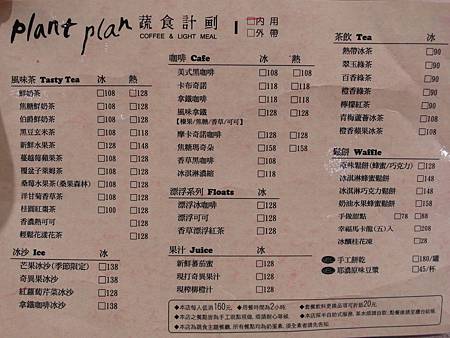 plant plan 蔬食計劃
COFFEE & LIGHT MEAL
□內用
□外帶
風味茶 Tasty Tea 冰 熱
鮮奶茶 □108 □128
焦糖鮮奶茶 □108 □128
伯爵鮮奶茶 □108 □128
黑豆玄米茶 □108 □118
新鮮水果茶 □128 □148
蔓越莓蘋果茶 □128 □148
覆盆子果姆茶 □128 □148
桑莓水果茶(桑果森林) □128 □148
洋甘菊香草茶 □108 □128
桂圓紅棗茶 □100 □128
香濃熱可可 □128
輕鬆花漾花茶 □128
冰沙 Ice 冰
芒果冰沙(季節限定) □138
奇異果冰沙 □138
紅蘿蔔芹菜冰沙 □138
拿鐵咖啡冰沙 □138
咖啡 Cafe 冰 熱
美式黑咖啡 □108 □108
卡布奇諾 □128 □128
拿鐵咖啡 □128 □128
風味拿鐵 □128 □128
【榛果/焦糖/香草/可可】
摩卡奇諾咖啡 □128 □128
焦糖瑪奇朵 □158 □158
香草黑咖啡 □108
冰淇淋濃縮 □128
漂浮系列 Floats 冰
漂浮冰咖啡 □128
漂浮可可 □128
香草漂浮紅茶 □128
果汁 Juice 冰
新鮮蕃茄蜜 □128
現打奇異果汁 □128
現榨柳橙汁 □128
茶飲 Tea 冰
熱帶冰茶 □90
翠玉綠茶 □90
百香綠茶 □90
橙香綠茶 □90
檸檬紅茶 □90
青梅蘆薈冰茶 □108
橙香蘋果冰茶 □108
鬆餅 Waffle
原味鬆餅(蜂蜜/巧克力) □118
冰淇淋蜂蜜鬆餅 □138
冰淇淋巧克力鬆餅 □138
奶油水果蜂蜜鬆餅 □158
手做甜點 □78 □88
幸福馬卡龍(五)入 □208
冰釀桂花凍 □28
手工餅乾 □180/罐
耶濃原味豆漿 □45/杯
◆本店每人低消160元, ◆用餐時間為2小時, ◆套餐飲料更換品項可折抵20元
◆本店之餐點皆為手工現點現做, 煩請耐心等候.
◆本店為蔬食主題餐廳, 所有餐點均為奶蛋素, 須全素者請先告知.